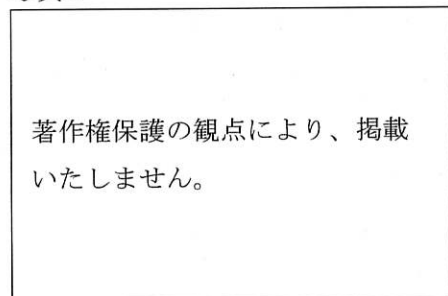 著作権保護の観点により、掲載
いたしません。